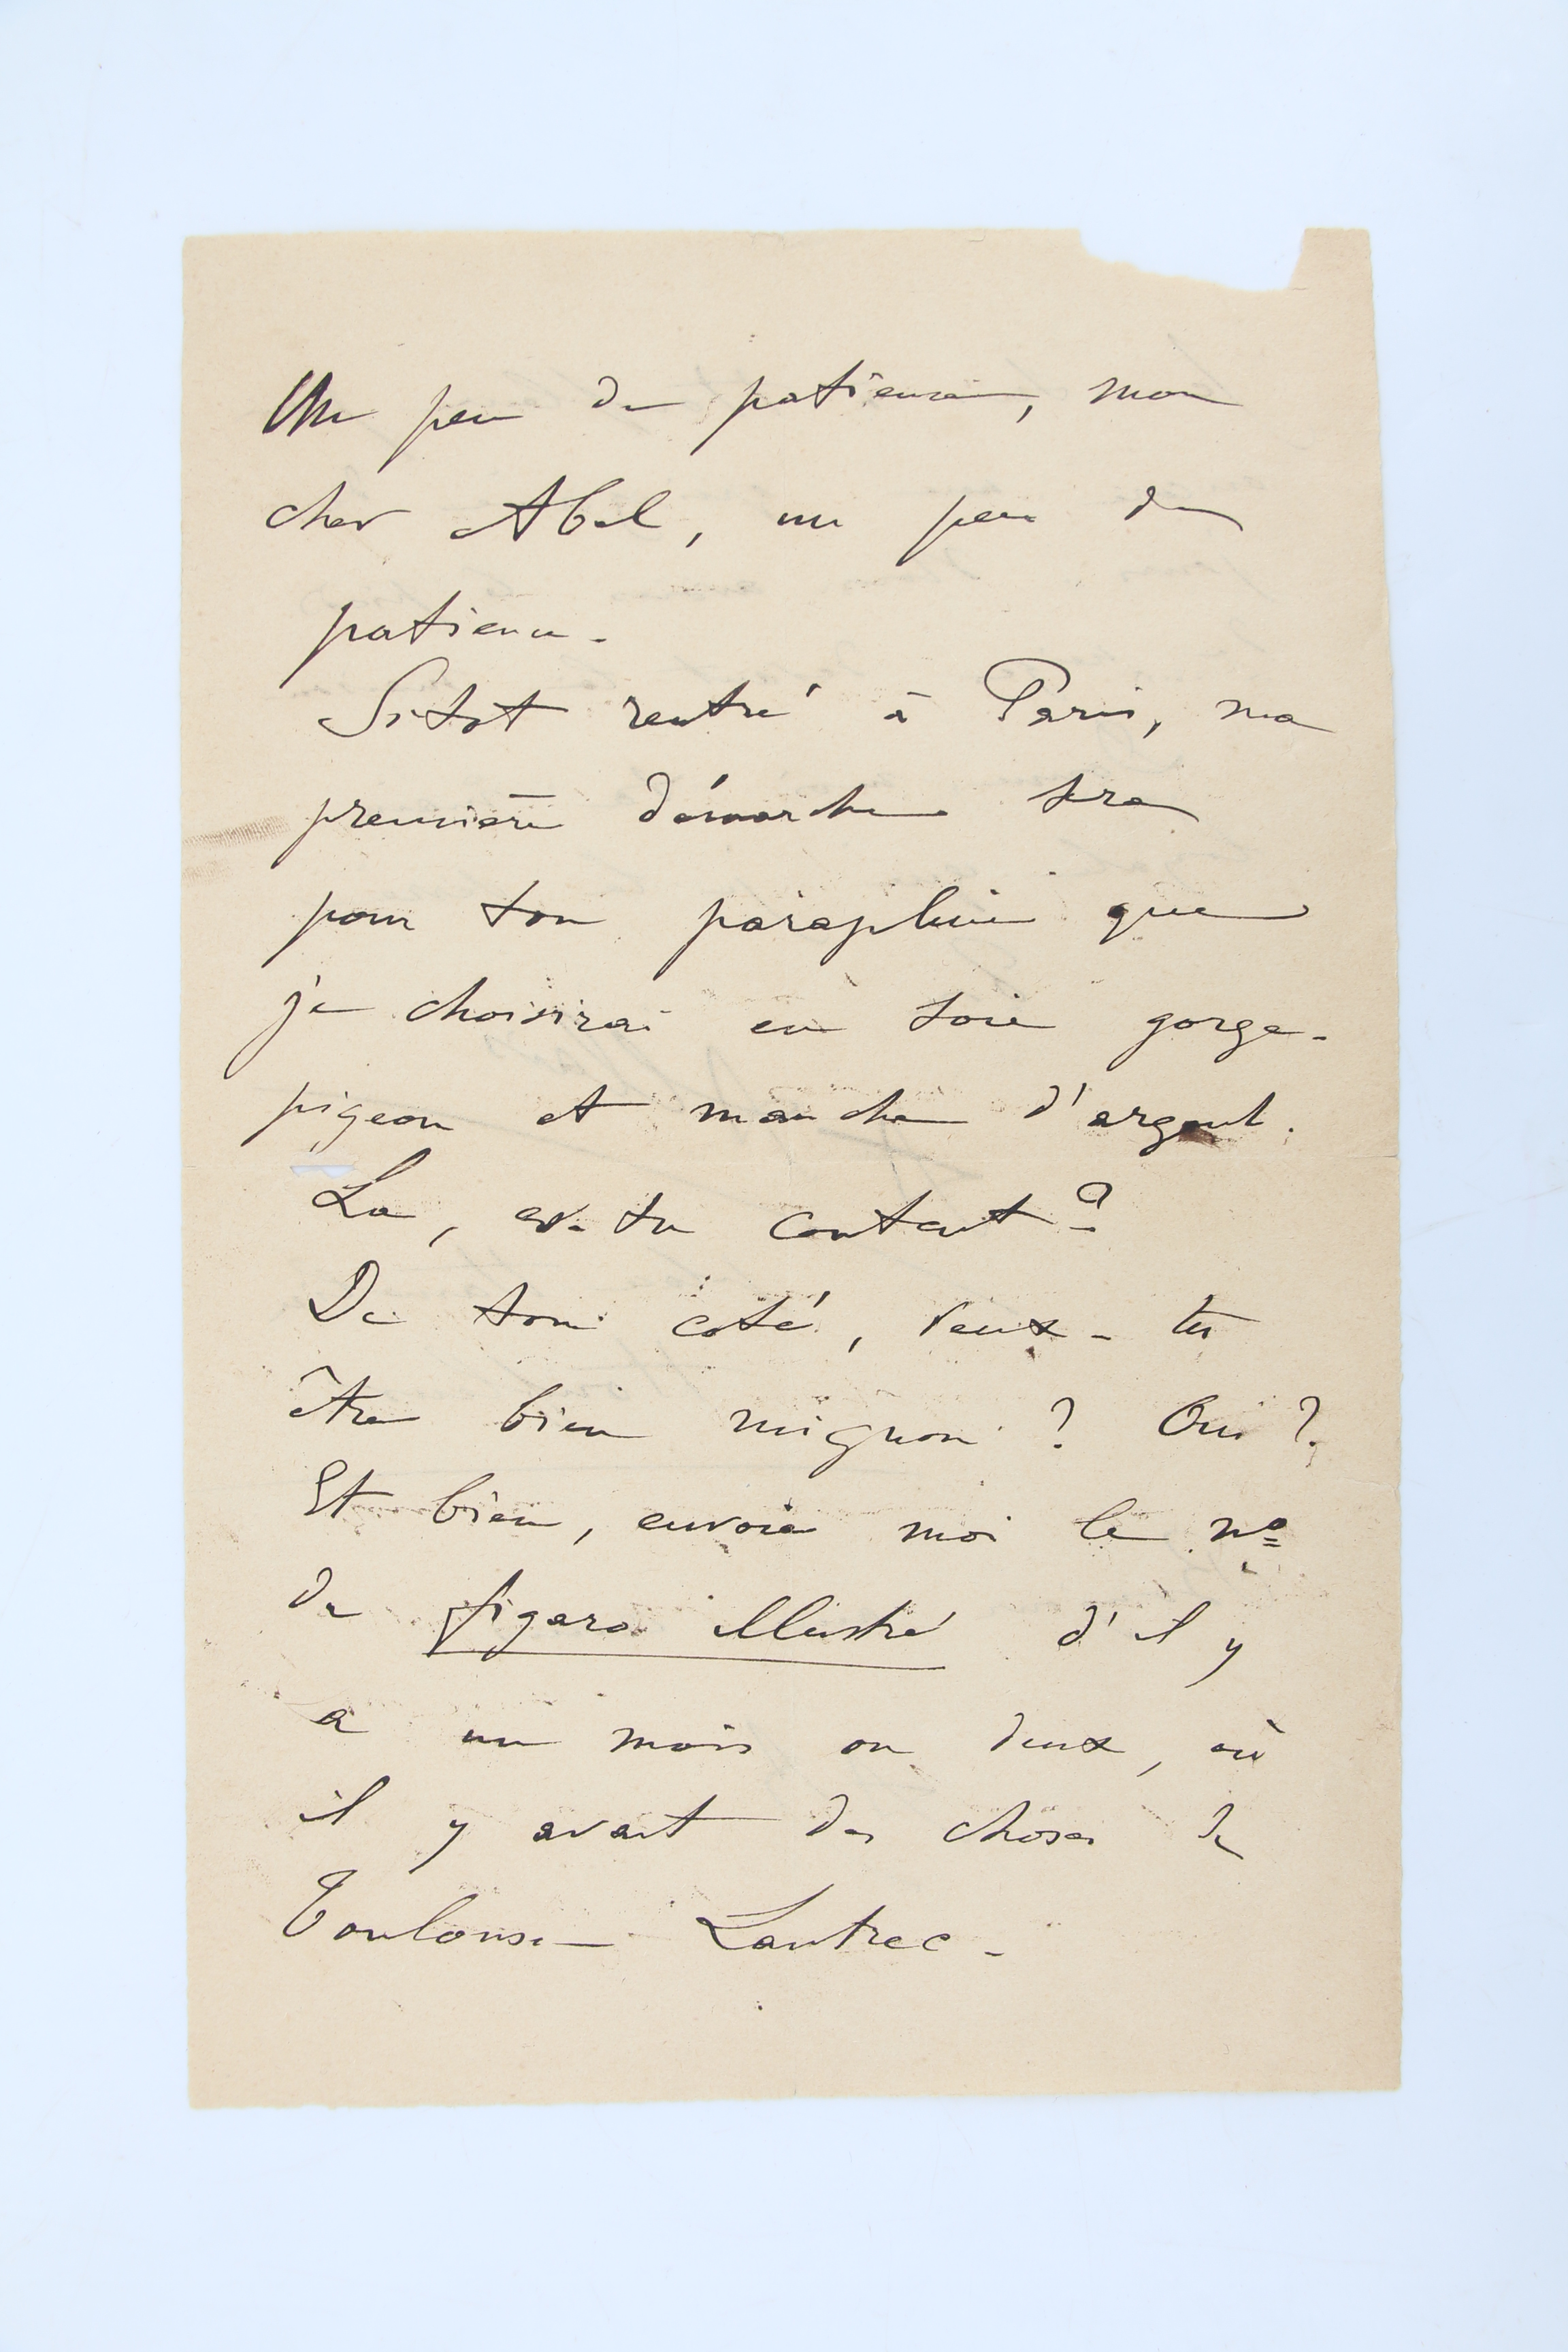 Un peu de patience, mon
cher Abel, un peu de
patience.
Sitot rentré à Paris, ma
première démarche sera
pour ton parapluie que
je choisirai en soie gorge-
pigeon et manche d'argent.
La, es-tu content ?
De ton coté, veux-tu
être bien mignon ? Oui ?
Et bien, envoie moi le nº
du figaro illustré d'il y
a un mois ou deux, où
il y avait des choses de
Toulouse-Lautrec.